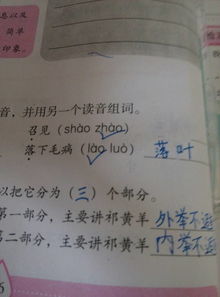 息以及
简单
印象。
音，并用另一个读音组词。
召见（shào zhào）
落下毛病（lào luò） 落叶
以把它分为（三）个部分。
第一部分，主要讲祁黄羊 外举不
第二部分，主要讲祁黄羊 内举不